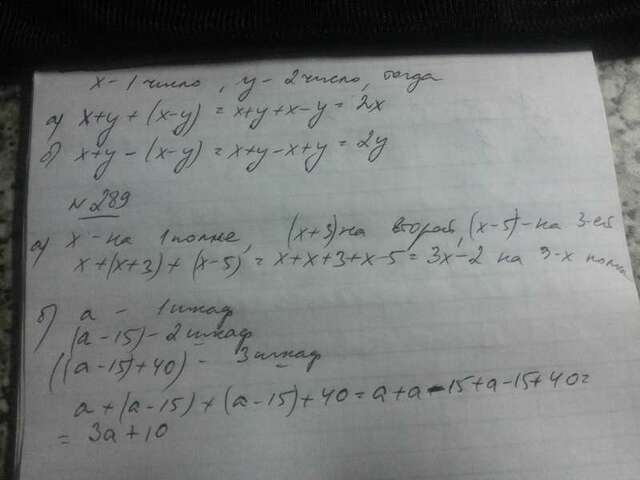 x - 1 число, y - 2 число, тогда
а) x+y + (x-y) = x+y+x-y = 2x
б) x+y - (x-y) = x+y-x+y = 2y
N 289
а) x - на 1 полке, (x+3) на второй, (x-5) - на 3-ей
x + (x+3) + (x-5) = x+x+3+x-5 = 3x-2 на 3-х полка
б) a - 1 шкаф
(a-15) - 2 шкаф
((a-15)+40) - 3 шкаф
a + (a-15) + (a-15) + 40 = a+a-15+a-15+40 =
= 3a+10